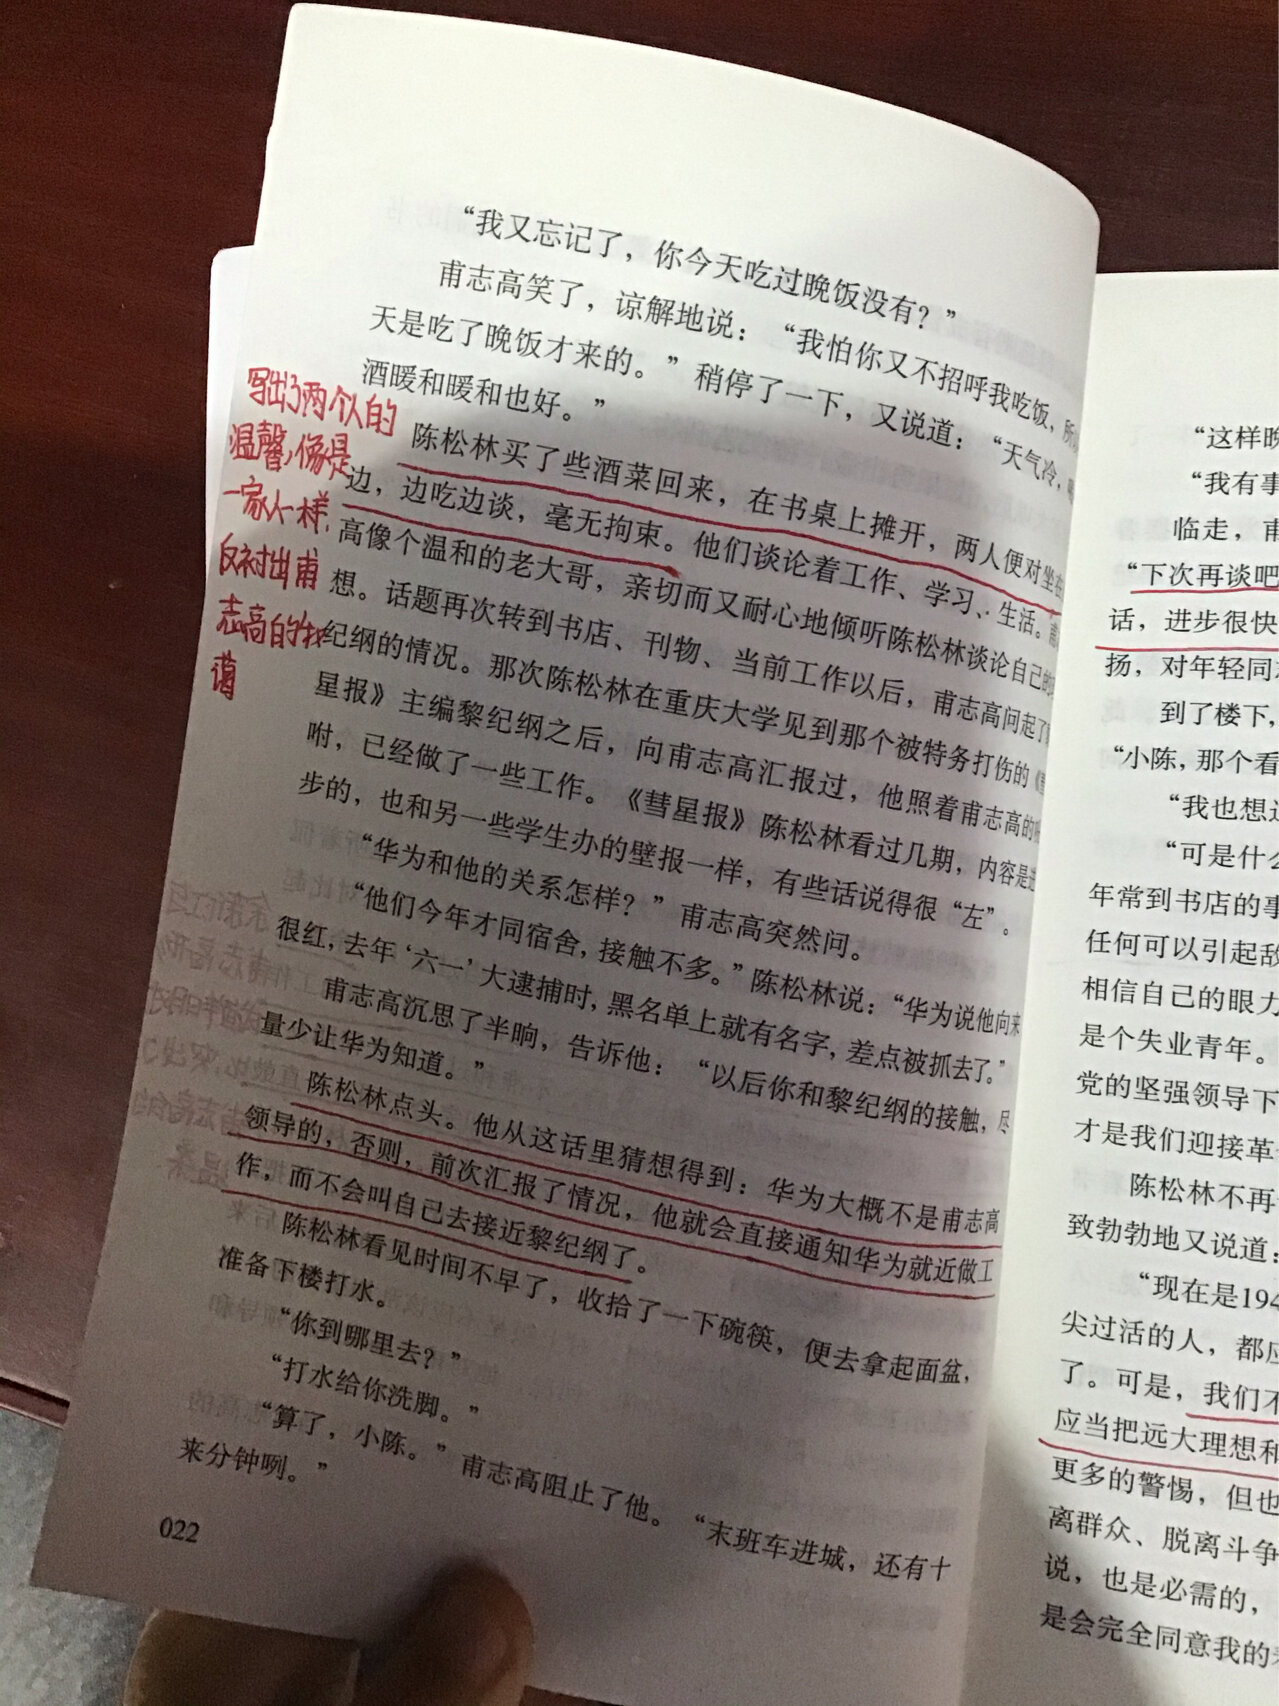 “我又忘记了，你今天吃过晚饭没有？”
甫志高笑了，谅解地说：“我怕你又不招呼我吃饭，所
天是吃了晚饭才来的。”稍停了一下，又说道：“天气冷，喝
酒暖和暖和也好。”
陈松林买了些酒菜回来，在书桌上摊开，两人便对坐在
边，边吃边谈，毫无拘束。他们谈论着工作、学习、生活。甫
高像个温和的老大哥，亲切而又耐心地倾听陈松林谈论自己的
想。话题再次转到书店、刊物、当前工作以后，甫志高问起了
纪纲的情况。那次陈松林在重庆大学见到那个被特务打伤的《彗
星报》主编黎纪纲之后，向甫志高汇报过，他照着甫志高的吩
咐，已经做了一些工作。《彗星报》陈松林看过几期，内容是进
步的，也和另一些学生办的壁报一样，有些话说得很“左”。
“华为和他的关系怎样？”甫志高突然问。
“他们今年才同宿舍，接触不多。”陈松林说：“华为说他向来
很红，去年‘六一’大逮捕时，黑名单上就有名字，差点被抓去了。”
甫志高沉思了半晌，告诉他：“以后你和黎纪纲的接触，尽
量少让华为知道。”
陈松林点头。他从这话里猜想得到：华为大概不是甫志高
领导的，否则，前次汇报了情况，他就会直接通知华为就近做工
作，而不会叫自己去接近黎纪纲了。
陈松林看见时间不早了，收拾了一下碗筷，便去拿起面盆，
准备下楼打水。
“你到哪里去？”
“打水给你洗脚。”
“算了，小陈。”甫志高阻止了他。“末班车进城，还有十
来分钟咧。”
022
写出了两个人的
温馨，像是
一家人一样，
反衬出甫
志高的
“这样晚
“我有事
临走，甫
“下次再谈吧
话，进步很快
扬，对年轻同志
到了楼下，
“小陈，那个看
“我也想过
“可是什么
年常到书店的事
任何可以引起敌
相信自己的眼力
是个失业青年。
党的坚强领导下
才是我们迎接革
陈松林不再
致勃勃地又说道：
“现在是194
尖过活的人，都应
了。可是，我们不
应当把远大理想和
更多的警惕，但也
离群众、脱离斗争
说，也是必需的，
是会完全同意我的